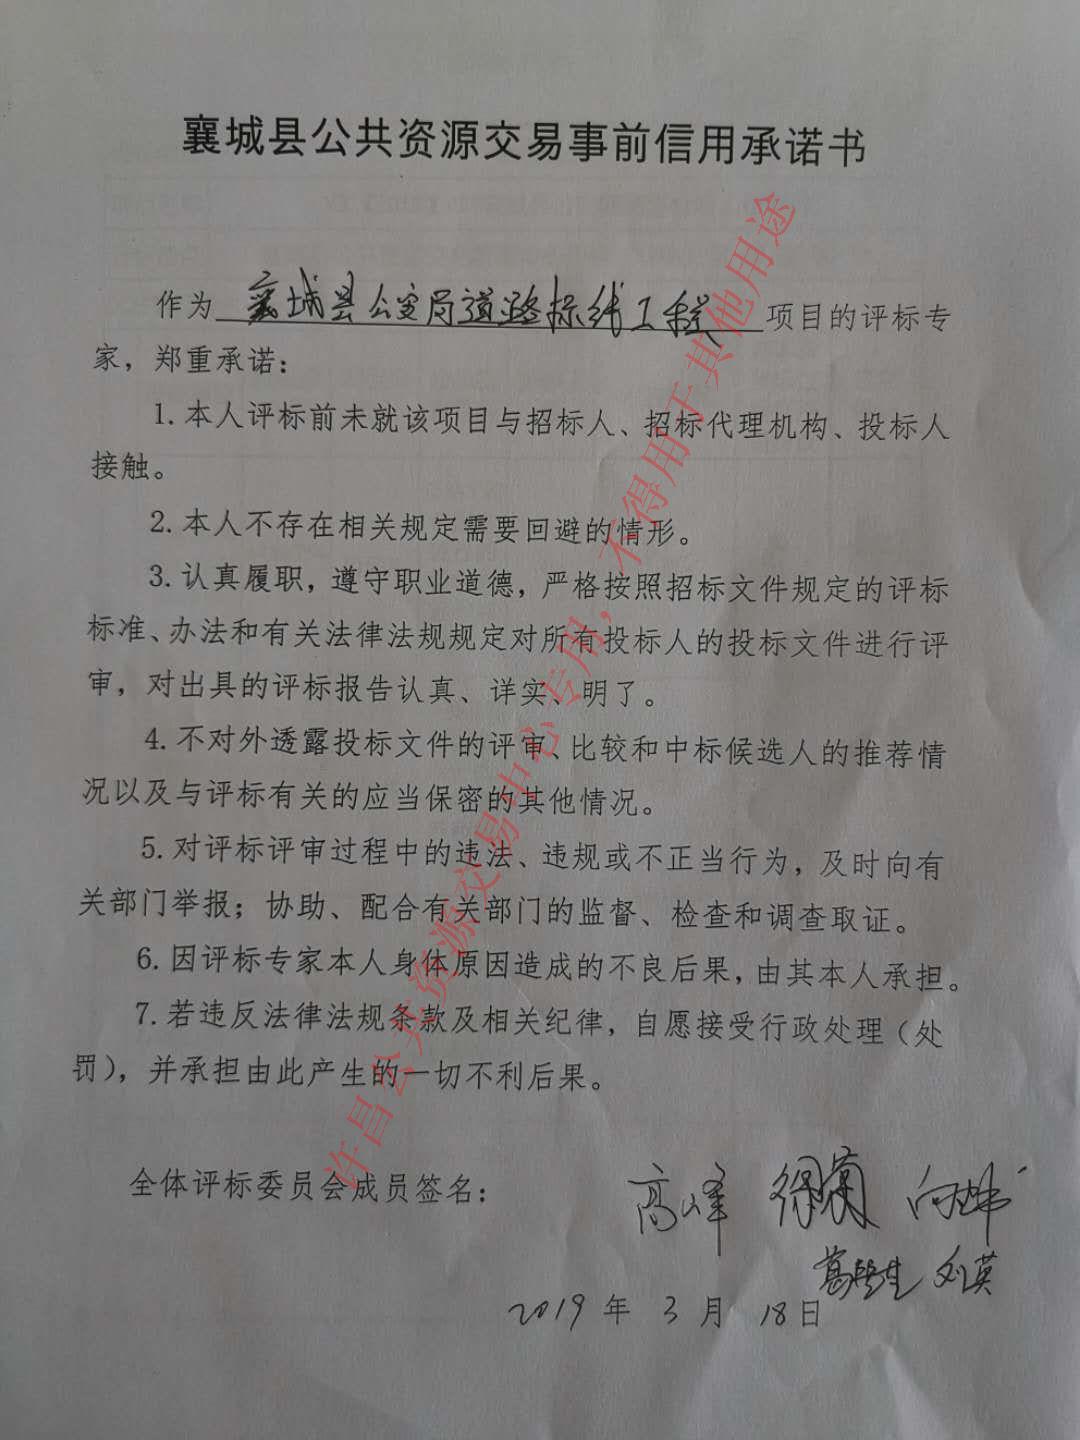 襄城县公共资源交易事前信用承诺书
作为 襄城县公安局道路标线工程 项目的评标专
家，郑重承诺：
1.本人评标前未就该项目与招标人、招标代理机构、投标人
接触。
2.本人不存在相关规定需要回避的情形。
3.认真履职，遵守职业道德，严格按照招标文件规定的评标
标准、办法和有关法律法规规定对所有投标人的投标文件进行评
审，对出具的评标报告认真、详实、明了。
4.不对外透露投标文件的评审、比较和中标候选人的推荐情
况以及与评标有关的应当保密的其他情况。
5.对评标评审过程中的违法、违规或不正当行为，及时向有
关部门举报；协助、配合有关部门的监督、检查和调查取证。
6.因评标专家本人身体原因造成的不良后果，由其本人承担。
7.若违反法律法规条款及相关纪律，自愿接受行政处理（处
罚），并承担由此产生的一切不利后果。
全体评标委员会成员签名：
高峰
刘英
2019年3月18日
许昌公共资源交易中心专用，不得用于其他用途